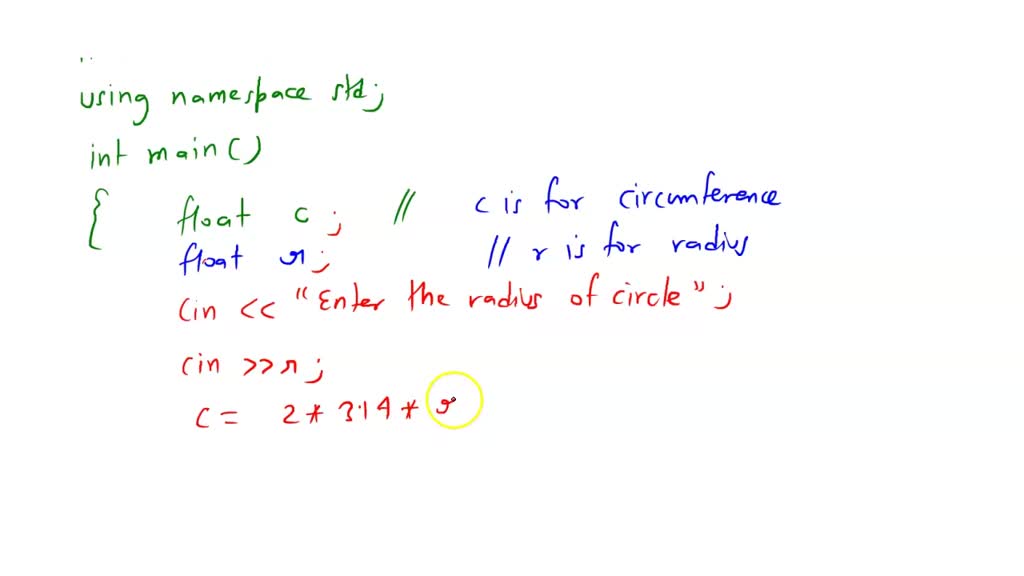 using namespace std;
int main()
{ float c ; // c is for circumference
float r ; // r is for radius
cin << "Enter the radius of circle" ;
cin >> r ;
c = 2 * 3.14 * r